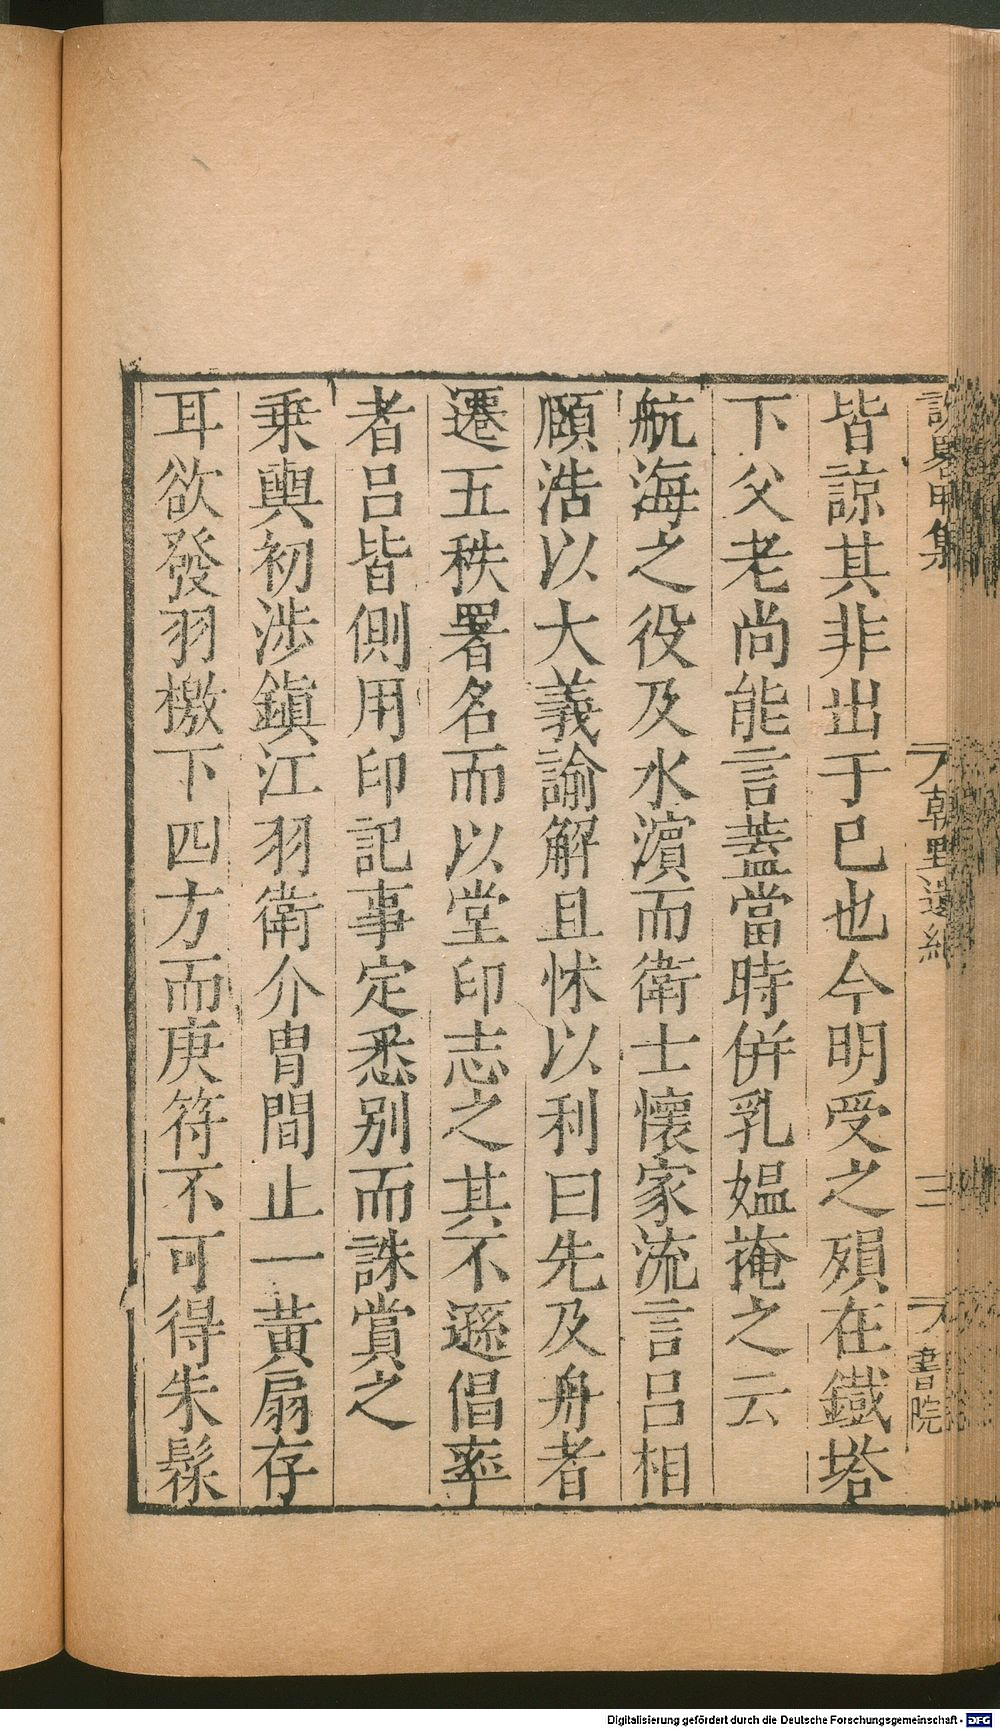 皆諒其非出于已也今明受之殞在鐵塔
下父老尚能言蓋當時併乳媼掩之云
航海之役及水濵而衛士懷家流言呂相
頤浩以大義諭解且怵以利曰先及舟者
遷五秩署名而以堂印志之其不遜倡率
者呂皆側用印記事定悉别而誅賞之
乗輿初涉鎭江羽衛介冑間止一黃扇存
耳欲發羽檄下四方而庚符不可得朱髹
集
朝野遺紀
三
書院
Digitalisierung gefördert durch die Deutsche Forschungsgemeinschaft - DFG